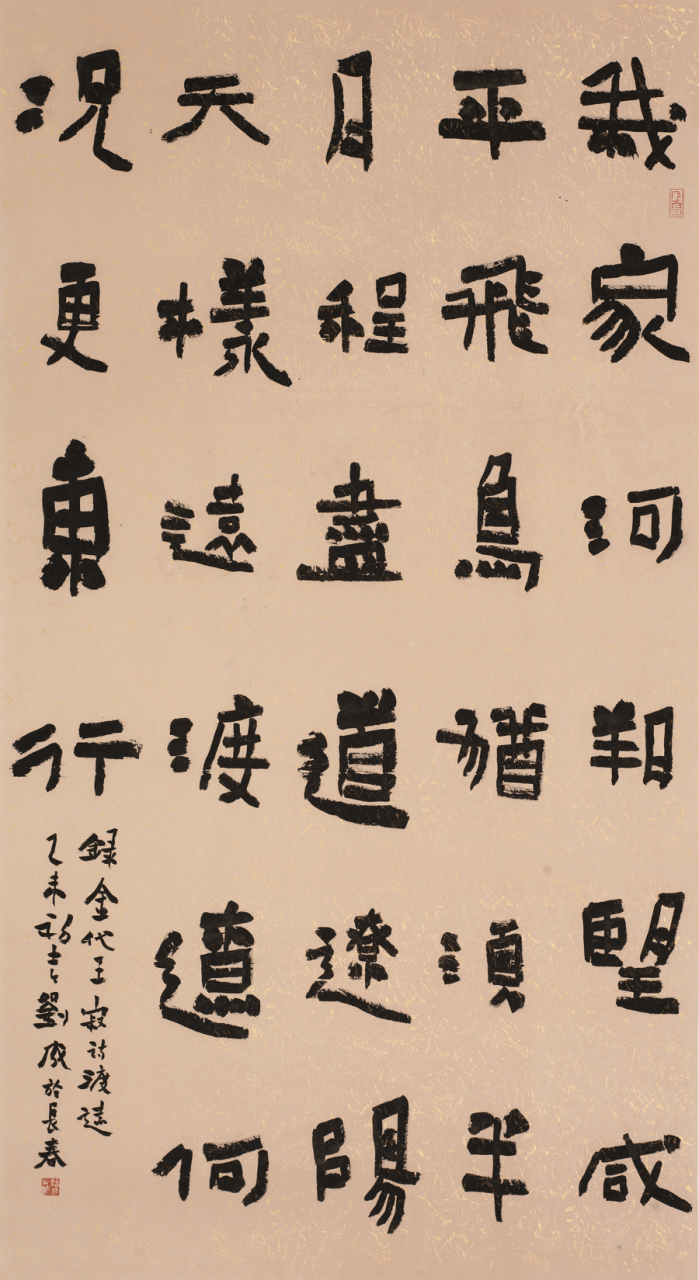 我家河朔望咸
平飛鳥猶須半
月程盡道遼陽
天樣遠渡遼何
況更東行
錄金代王寂詩渡遼
乙未初劉成於長春